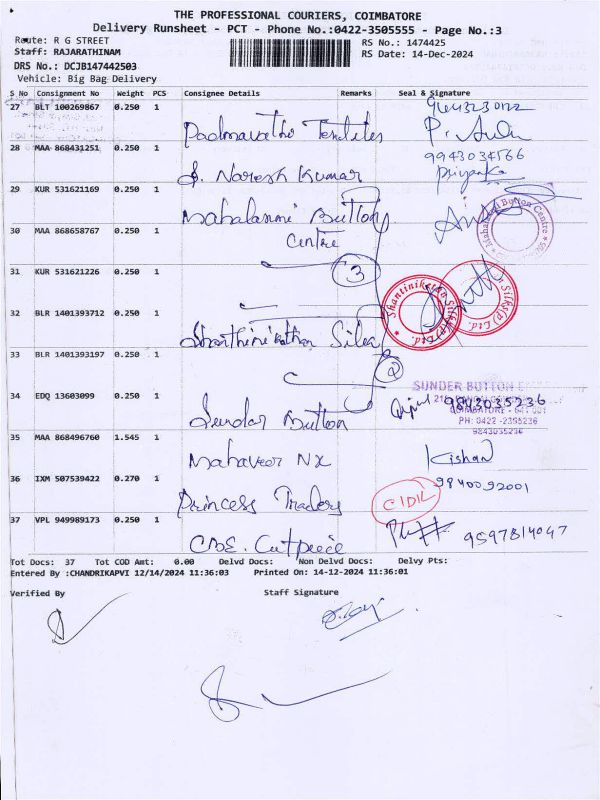 THE PROFESSIONAL COURIERS, COIMBATORE
Delivery Runsheet - PCT - Phone No.:0422-3505555 - Page No.:3
Route: R G STREET
RS No.: 1474425
Staff: RAJARATHINAM
RS Date: 14-Dec-2024
DRS No.: DCJB147442503
Vehicle: Big Bag Delivery
S No Consignment No Weight PCS Consignee Details Remarks Seal & Signature
27 BLT 100269867 0.250 1
Padmavatho Textiles
28 MAA 868431251 0.250 1 9943034566
S. Naresh Kumar Priyanka
29 KUR 531621169 0.250 1
Mahalaxmi Button
30 MAA 868658767 0.250 1
Centre
31 KUR 531621226 0.250 1 3
32 BLR 1401393712 0.250 1
Shanthinikethan Silks
Shantiniketan Silks(P) Ltd.
33 BLR 1401393197 0.250 1
2
34 EDQ 13603099 0.250 1 9843035236
SUNDER BUTTON
COIMBATORE - 641 001
PH: 0422 -2395236
9843035236
Sundar Button
35 MAA 868496760 1.545 1
Mahaveer NX Kishan
36 IXM 507539422 0.270 1 9840092001
Princess Traders
37 VPL 949989173 0.250 1
CBE. Cutpiece 9597814047
Tot Docs: 37 Tot COD Amt: 0.00 Delvd Docs: Non Delvd Docs: Delvy Pts:
Entered By :CHANDRIKAPVI 12/14/2024 11:36:03 Printed On: 14-12-2024 11:36:01
Verified By Staff Signature